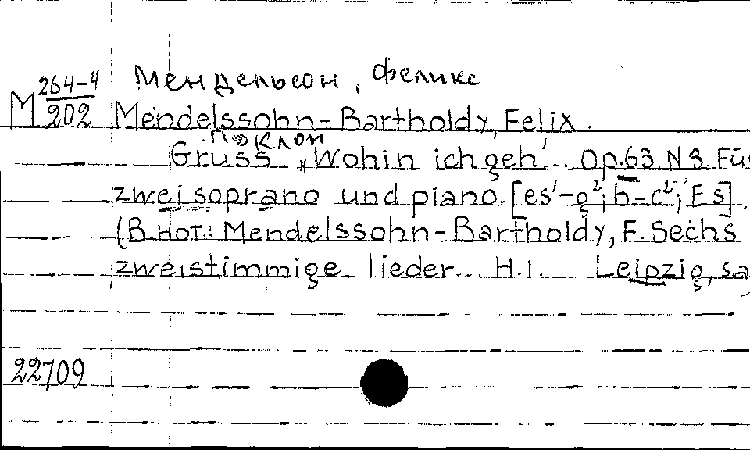 Мендельсон, Феликс
М 264-4
202
Mendelssohn-Bartholdy, Felix.
поклон
Gruss "Wohin ich geh'.. Op.63 N 3. Für
zweisoprano und piano. [es'-g²; b-c²; Es].
(В нот.: Mendelssohn-Bartholdy, F. Sechs
zweistimmige lieder... H.1. Leipzig, sa
22709